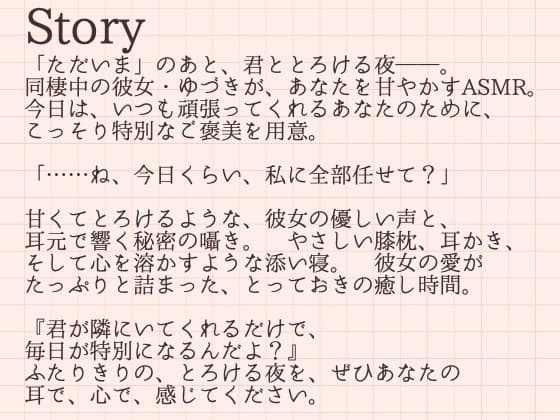 Story
「ただいま」のあと、君ととろける夜――。
同棲中の彼女・ゆづきが、あなたを甘やかすASMR。
今日は、いつも頑張ってくれるあなたのために、
こっそり特別なご褒美を用意。
「……ね、今日くらい、私に全部任せて？」
甘くてとろけるような、彼女の優しい声と、
耳元で響く秘密の囁き。　やさしい膝枕、耳かき、
そして心を溶かすような添い寝。　彼女の愛が
たっぷりと詰まった、とっておきの癒し時間。
『君が隣にいてくれるだけで、
毎日が特別になるんだよ？』
ふたりきりの、とろける夜を、ぜひあなたの
耳で、心で、感じてください。